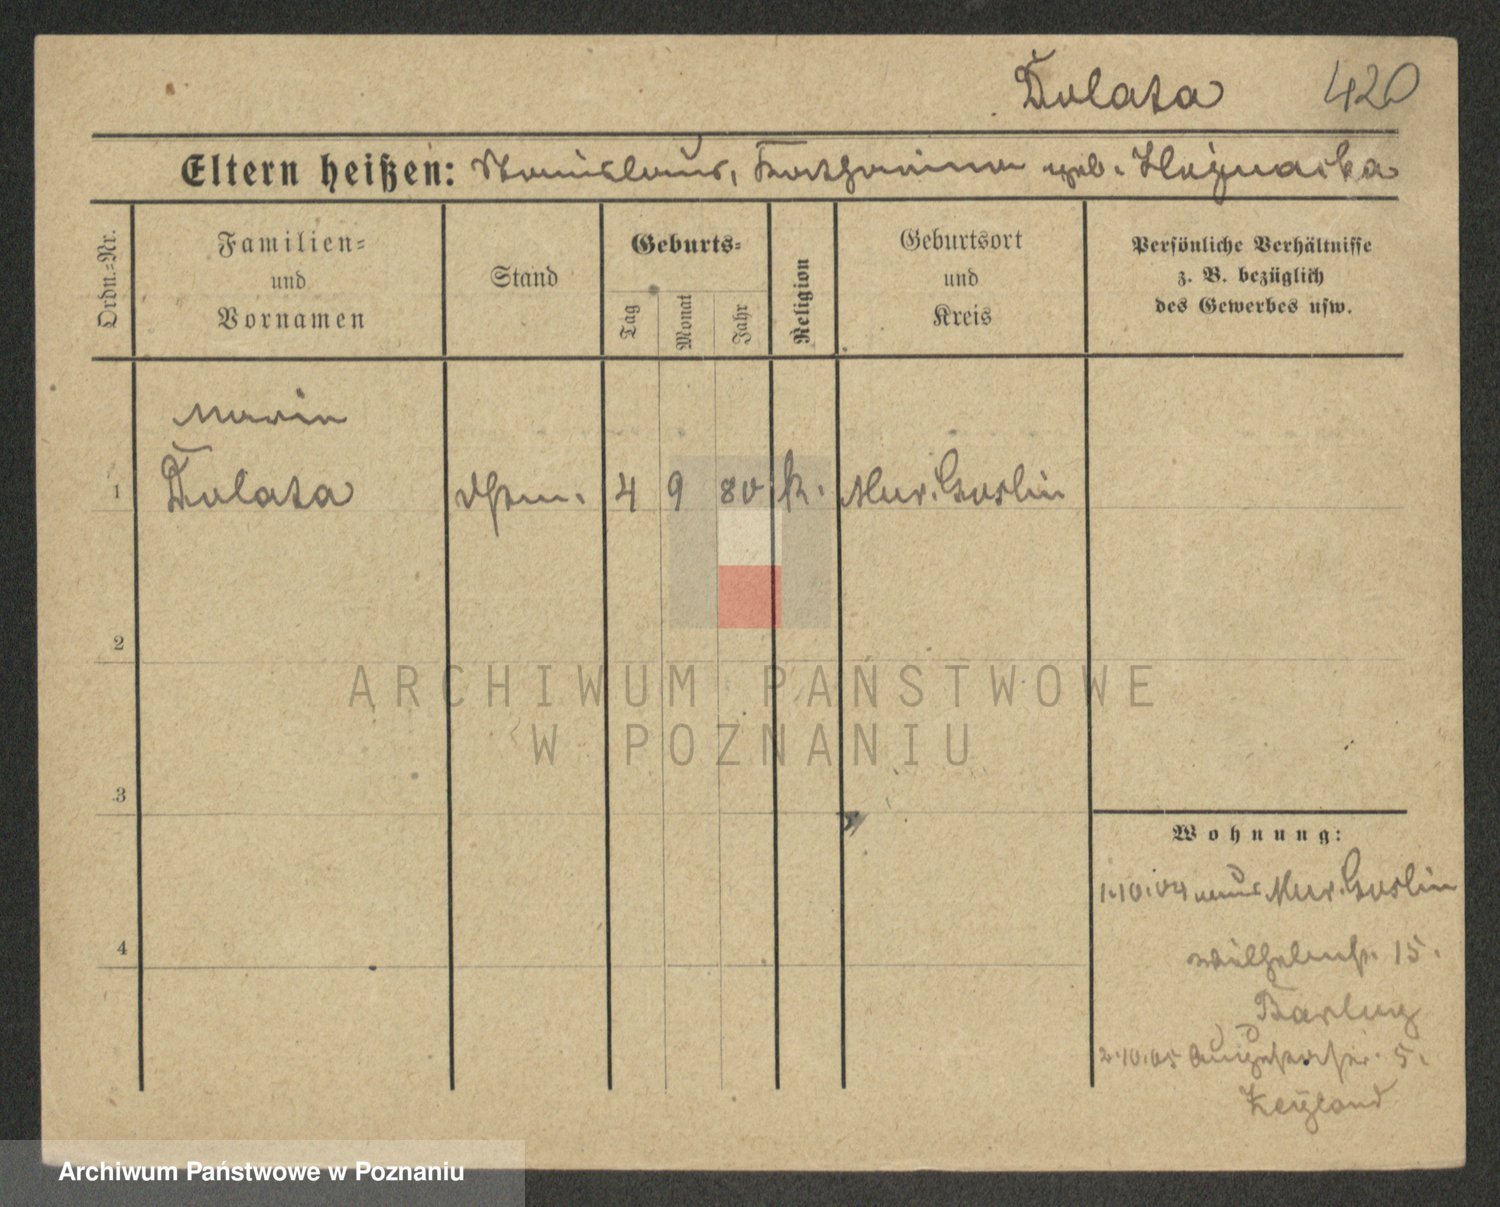 Dolata 420
Eltern heißen: Stanislaus, Katharina geb.
Ordn.=Nr.
Familien=
und
Vornamen
Stand
Geburts=
Tag
Monat
Jahr
Religion
Geburtsort
und
Kreis
Persönliche Verhältnisse
z. B. bezüglich
des Gewerbes usw.
Maria
1 Dolata 4 9 80 k. Mur. Goslin
2
3
4
Wohnung:
1.10.04 aus Mur. Goslin
Wilhelmstr. 15.
2.10.05 5.
ARCHIWUM PAŃSTWOWE
W POZNANIU
Archiwum Państwowe w Poznaniu